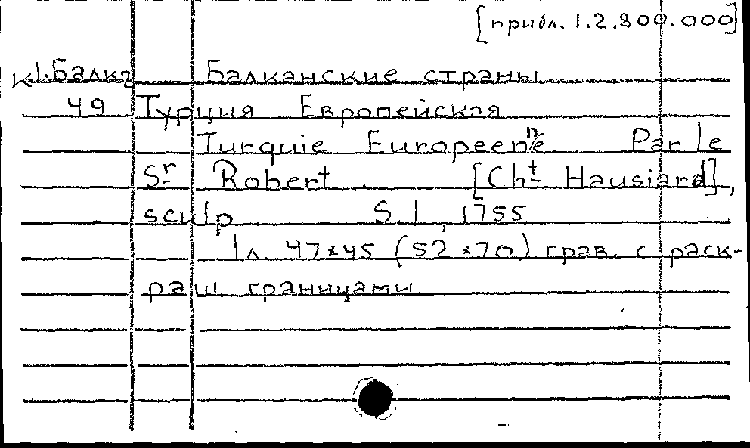 [прибл. 1:2.800.000]
К1.Балк2 Балканские страны
49 Турция Европейская
Turquie Européenne Par le
Sr Robert. [Cht Hausiard],
sculp S.l., 1755
1 л. 47×45 (52×70) грав. с раск-
раш границами